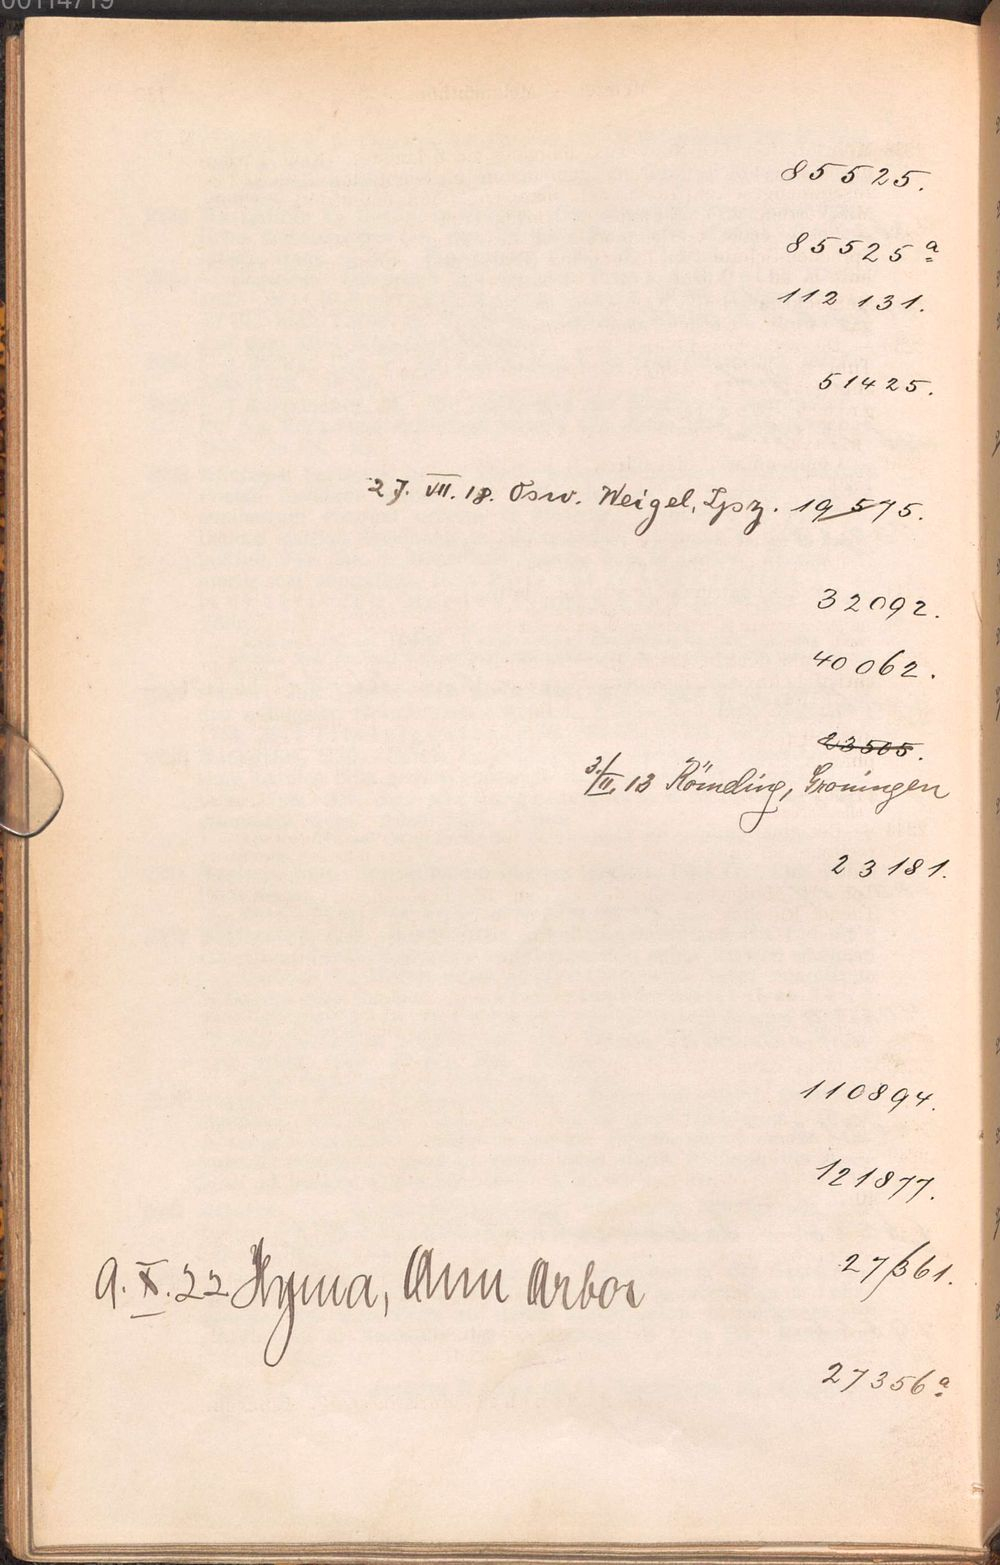 00114719
85525.
85525 a
112 131.
51425.
27. VII. 18. Osw. Weigel, Lpz. 19575.
32092.
40062.
23505.
3./II. 13 Römeling, Groningen
23181.
110894.
121877.
27361.
9. X. 22 Hyma, Ann Arbor
27356 a